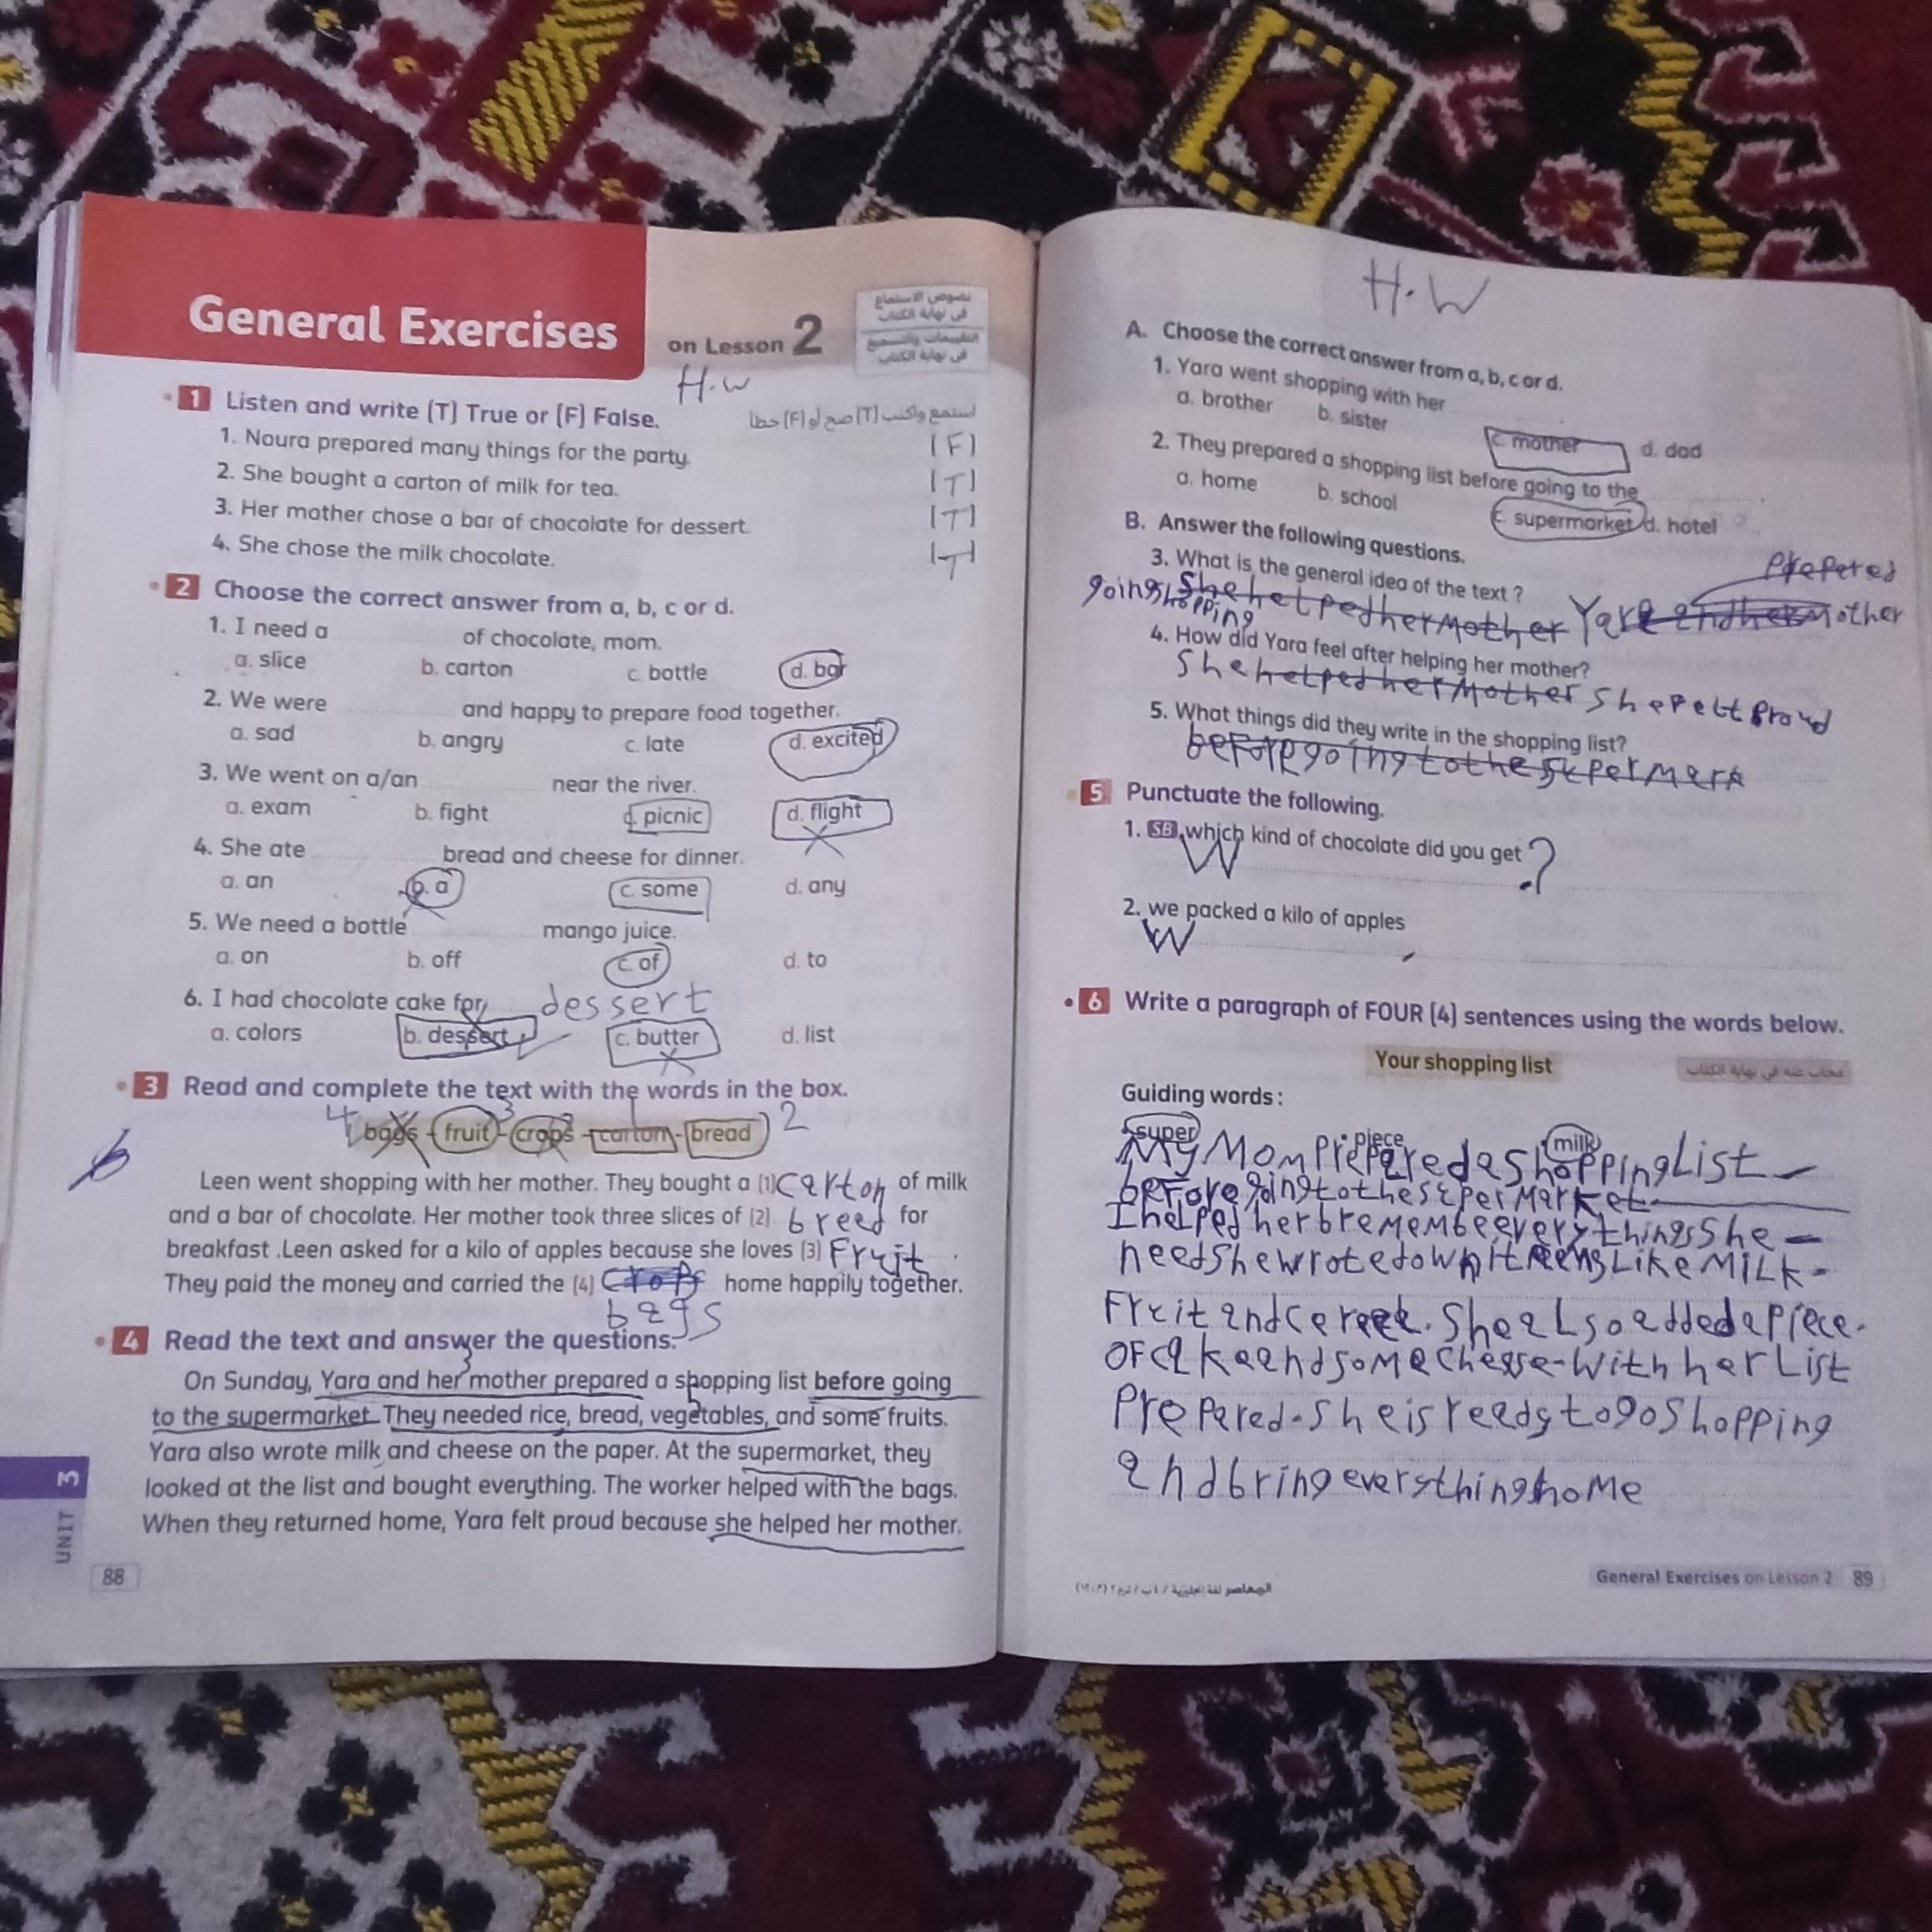 General Exercises
on Lesson 2
نصوص الاستماع
فى نهاية الكتاب
التقييمات والتسميع
فى نهاية الكتاب
H.w
1 Listen and write (T) True or (F) False.
استمع واكتب (T) صح أو (F) خطأ
1. Noura prepared many things for the party. (F)
2. She bought a carton of milk for tea. (T)
3. Her mother chose a bar of chocolate for dessert. (T)
4. She chose the milk chocolate. (T)
2 Choose the correct answer from a, b, c or d.
1. I need a of chocolate, mom.
a. slice b. carton c. bottle d. bar
2. We were and happy to prepare food together.
a. sad b. angry c. late d. excited
3. We went on a/an near the river.
a. exam b. fight c. picnic d. flight
4. She ate bread and cheese for dinner.
a. an b. a c. some d. any
5. We need a bottle mango juice.
a. on b. off c. of d. to
6. I had chocolate cake for dessert
a. colors b. dessert c. butter d. list
3 Read and complete the text with the words in the box.
4 3 1 2
bags - fruit - crops - carton - bread
Leen went shopping with her mother. They bought a (1) carton of milk
and a bar of chocolate. Her mother took three slices of (2) breed for
breakfast .Leen asked for a kilo of apples because she loves (3) Fruit .
They paid the money and carried the (4) crops home happily together.
bags
4 Read the text and answer the questions.
On Sunday, Yara and her mother prepared a shopping list before going
to the supermarket. They needed rice, bread, vegetables, and some fruits.
Yara also wrote milk and cheese on the paper. At the supermarket, they
looked at the list and bought everything. The worker helped with the bags.
When they returned home, Yara felt proud because she helped her mother.
UNIT 3
88
H.W
A. Choose the correct answer from a, b, c or d.
1. Yara went shopping with her
a. brother b. sister c. mother d. dad
2. They prepared a shopping list before going to the
a. home b. school c. supermarket d. hotel
B. Answer the following questions.
3. What is the general idea of the text ?
Prepered
going shopping She helped her Mother Yara and her Mother
4. How did Yara feel after helping her mother?
She helped her Mother She Felt Proud
5. What things did they write in the shopping list?
before going to the superMark
5 Punctuate the following.
1. SB which kind of chocolate did you get ?
W
2. we packed a kilo of apples
W
6 Write a paragraph of FOUR (4) sentences using the words below.
Your shopping list
مجاب عنه فى نهاية الكتاب
Guiding words :
super piece milk
My Mom Prepared a shopping List
before going to the superMarket
I helped her
need She wrote down Like MiLK
Fruit and She aLso added a Piece.
OF cake and soMe With her List
Prepared. She is ready to go Shopping
and bring everything hoMe
المعاصر لغة إنجليزية
General Exercises on Lesson 2 89